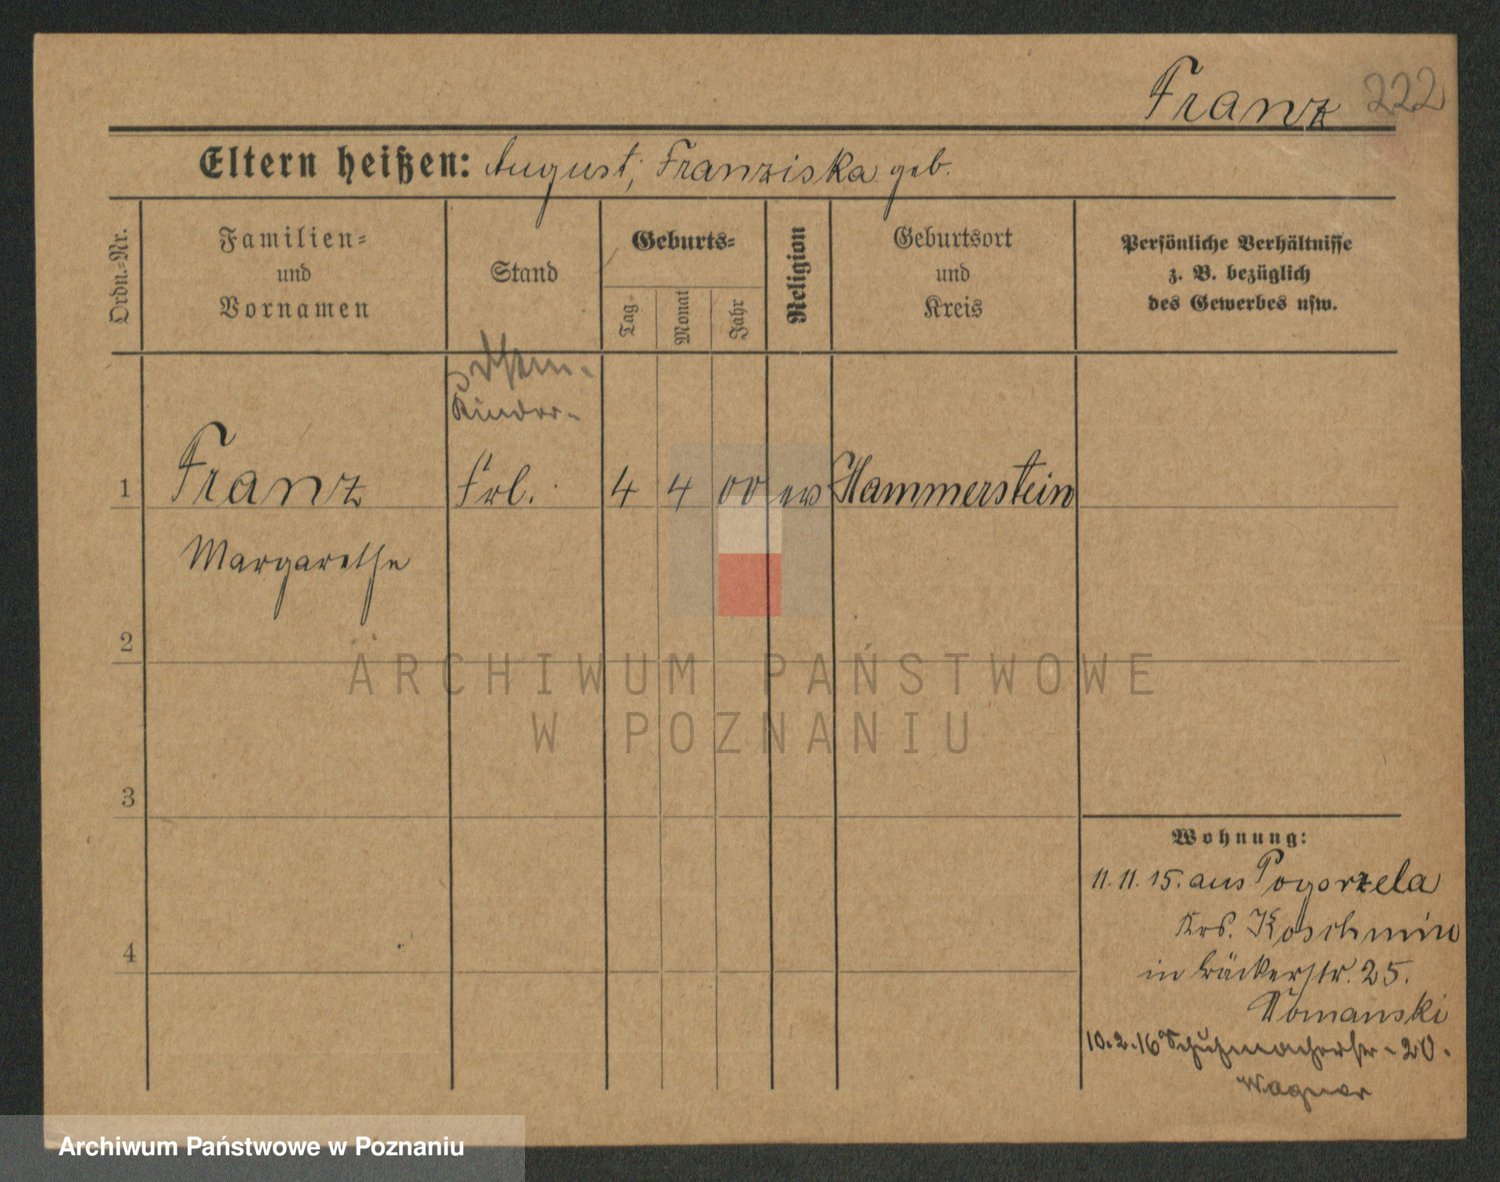 Franz 222
Eltern heißen: August, Franziska geb.
Ordn.-Nr.
Familien-
und
Vornamen
Stand
Geburts-
Tag
Monat
Jahr
Religion
Geburtsort
und
Kreis
Persönliche Verhältnisse
z. B. bezüglich
des Gewerbes usw.
Kinder-
1 Franz Frl. 4 4 00 ev Hammerstein
Margarethe
2
3
4
Wohnung:
11.11.15. aus Pogorzela
Krs. Koschmin
in Bäckerstr. 25.
10.2.16 Schuhmacherstr - 20.
Wagner
ARCHIWUM PAŃSTWOWE
W POZNANIU
Archiwum Państwowe w Poznaniu